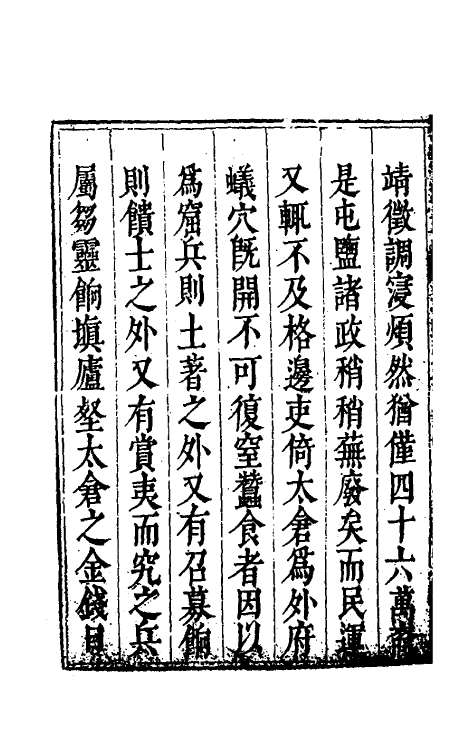 靖徵調寖煩然猶僅四十六萬
是屯鹽諸政稍稍蕪廢矣而民運
又輒不及格邊吏倚太倉為外府
蟻穴旣開不可復窒蠶食者因以
爲窟兵則土著之外又有召募餉
則饋士之外又有賞夷而究之兵
屬芻靈餉塡廬壑太倉之金錢目